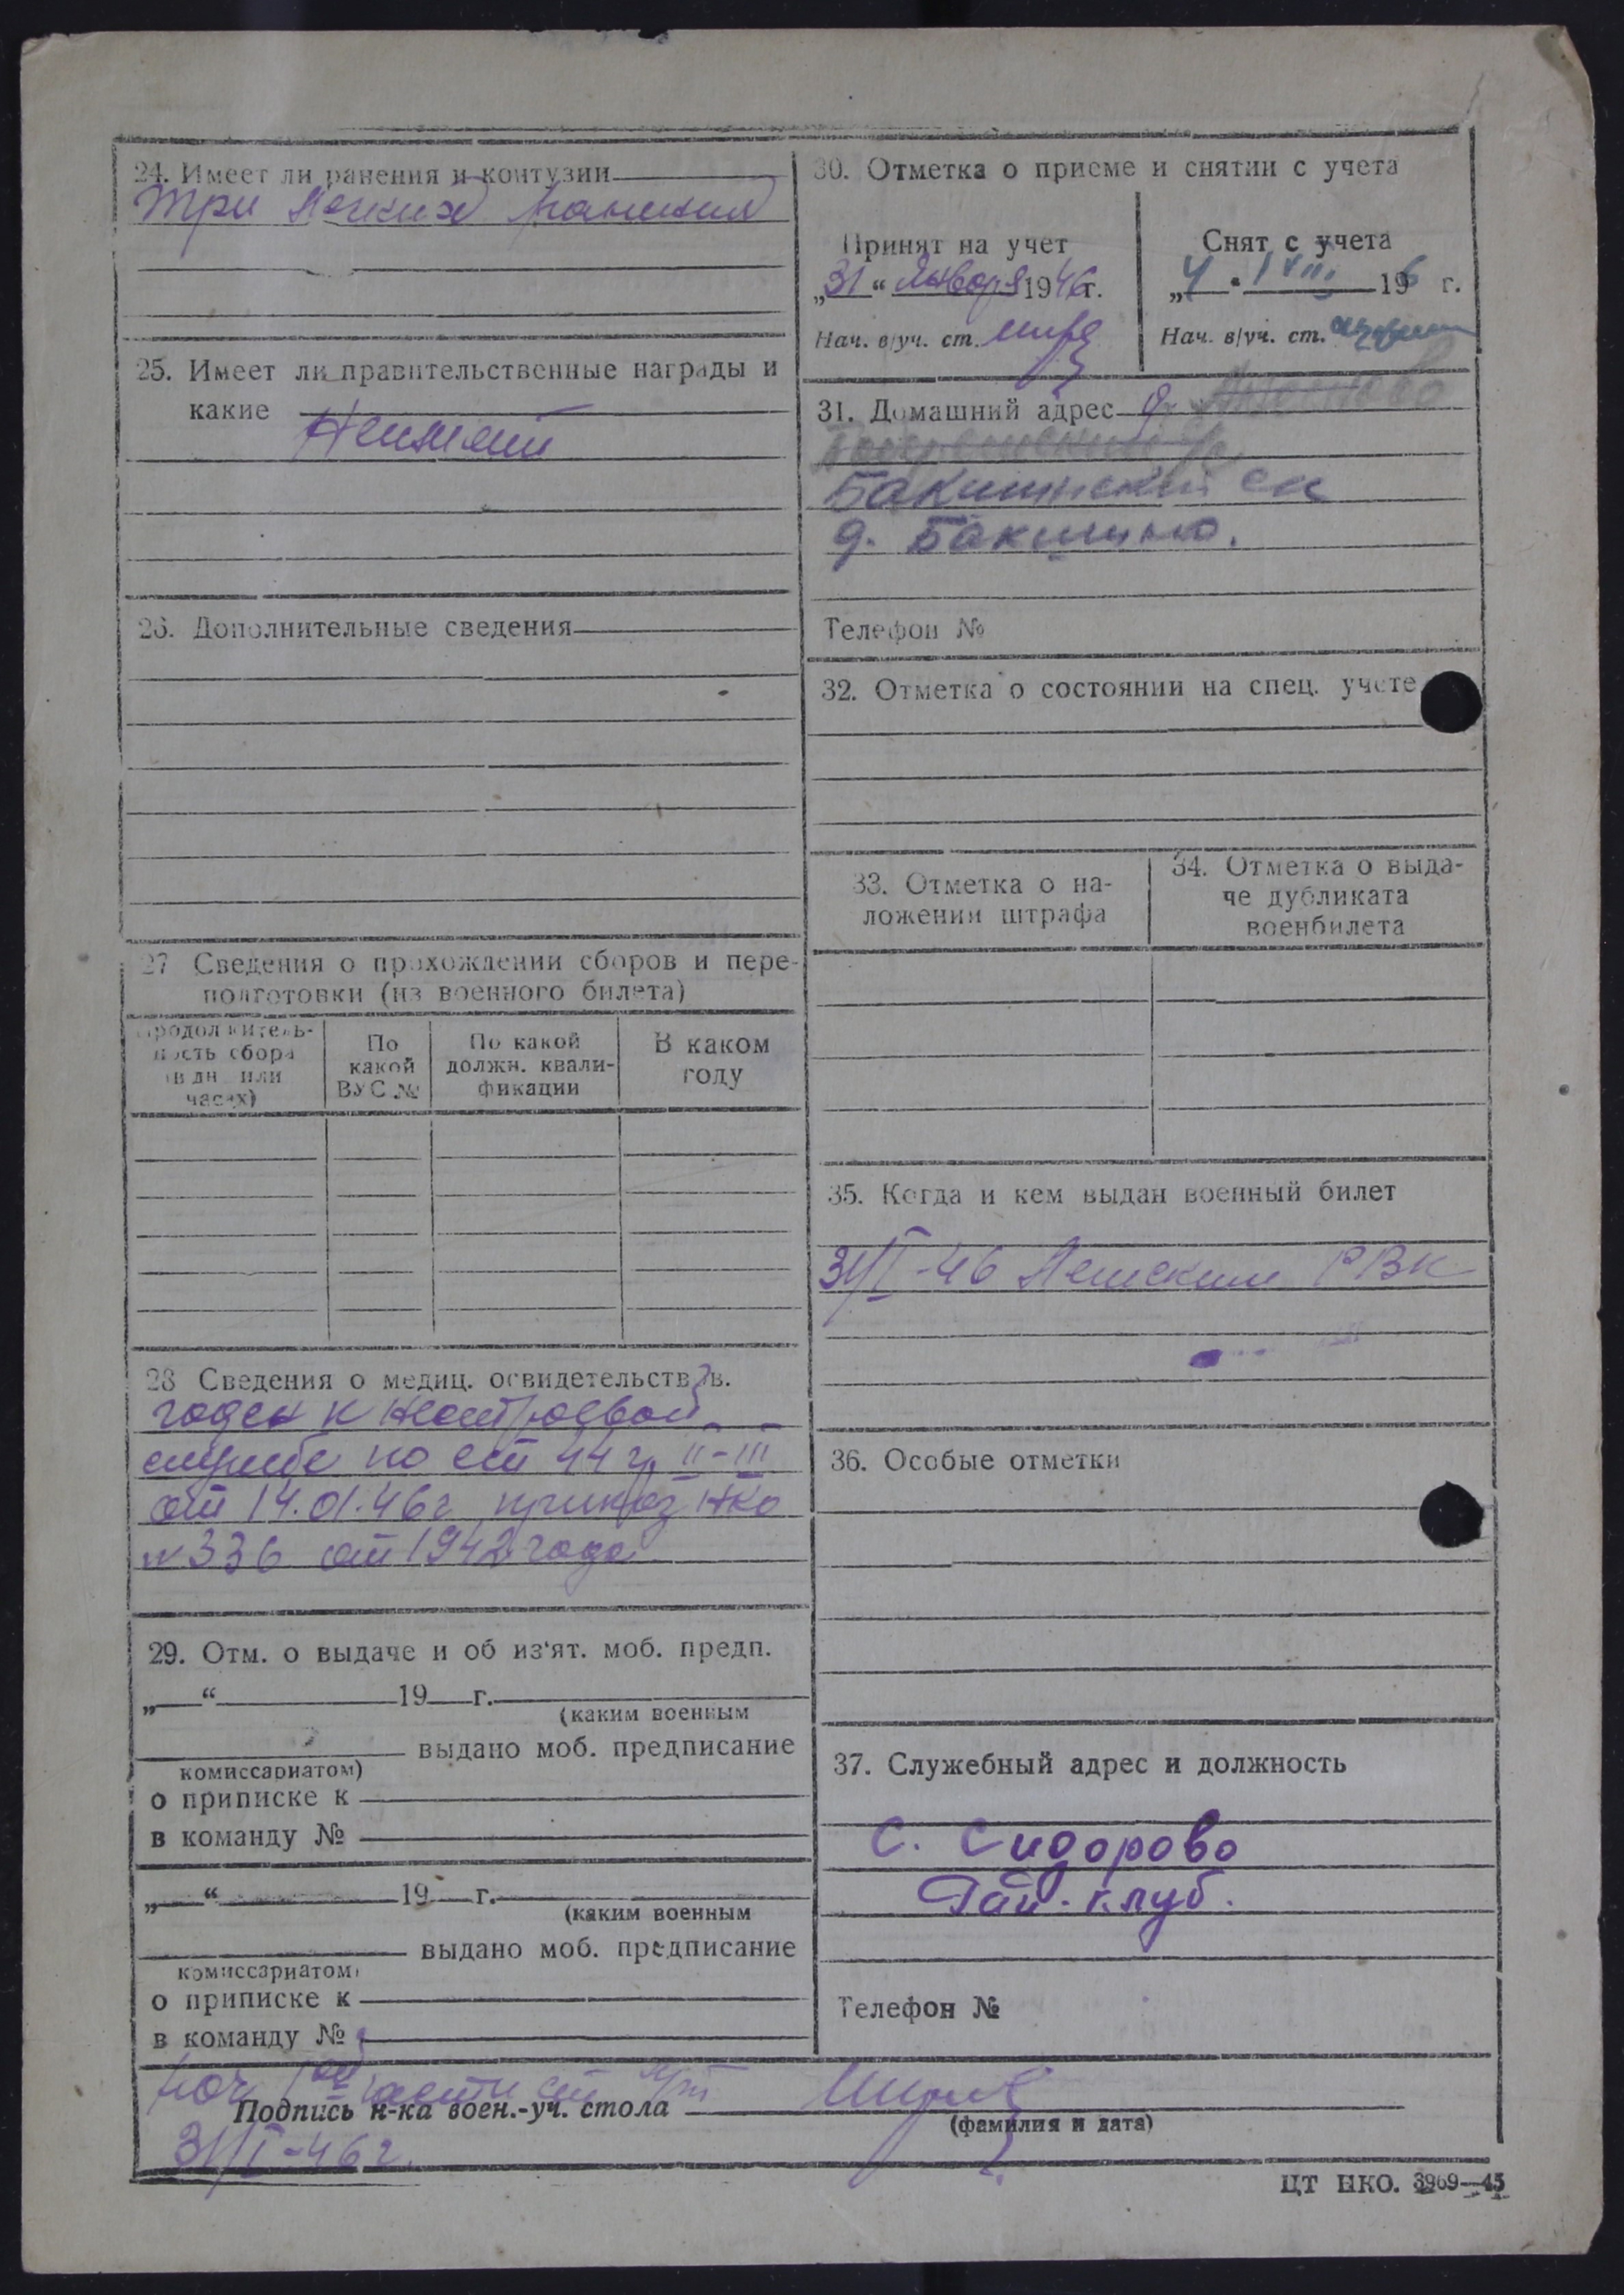 24. Имеет ли ранения и контузии
Три легких ранения
25. Имеет ли правительственные награды и
какие
Не имеет
26. Дополнительные сведения
27 Сведения о прохождении сборов и пере-
подготовки (из военного билета)
Продолжитель-
ность сбора
(в дн. или
часах)
По
какой
ВУС №
По какой
должн. квали-
фикации
В каком
году
28 Сведения о медиц. освидетельствов.
годен к нестроевой
службе по ст 44 г. II-III
от 14.01.46г приказ НКО
№ 336 от 1942 года
29. Отм. о выдаче и об из'ят. моб. предп.
„ “ 19 г.
(каким военным
выдано моб. предписание
комиссариатом)
о приписке к
в команду №
„ “ 19 г.
(каким военным
выдано моб. предписание
комиссариатом)
о приписке к
в команду №
30. Отметка о приеме и снятии с учета
Принят на учет
„31“ Января 1946г.
Нач. в/уч. ст.
Снят с учета
„4 “ VIII 196 г.
Нач. в/уч. ст.
31. Домашний адрес д.
Бакшинский с/с
д. Бакшино.
Телефон №
32. Отметка о состоянии на спец. учете
33. Отметка о на-
ложении штрафа
34. Отметка о выда-
че дубликата
военбилета
35. Когда и кем выдан военный билет
31/I-46 РВК
36. Особые отметки
37. Служебный адрес и должность
с. Сидорово
Рай. клуб.
Телефон №
Нач части
Подпись н-ка воен.-уч. стола
(фамилия и дата)
31/I-46г.
ЦТ НКО. 3969—45